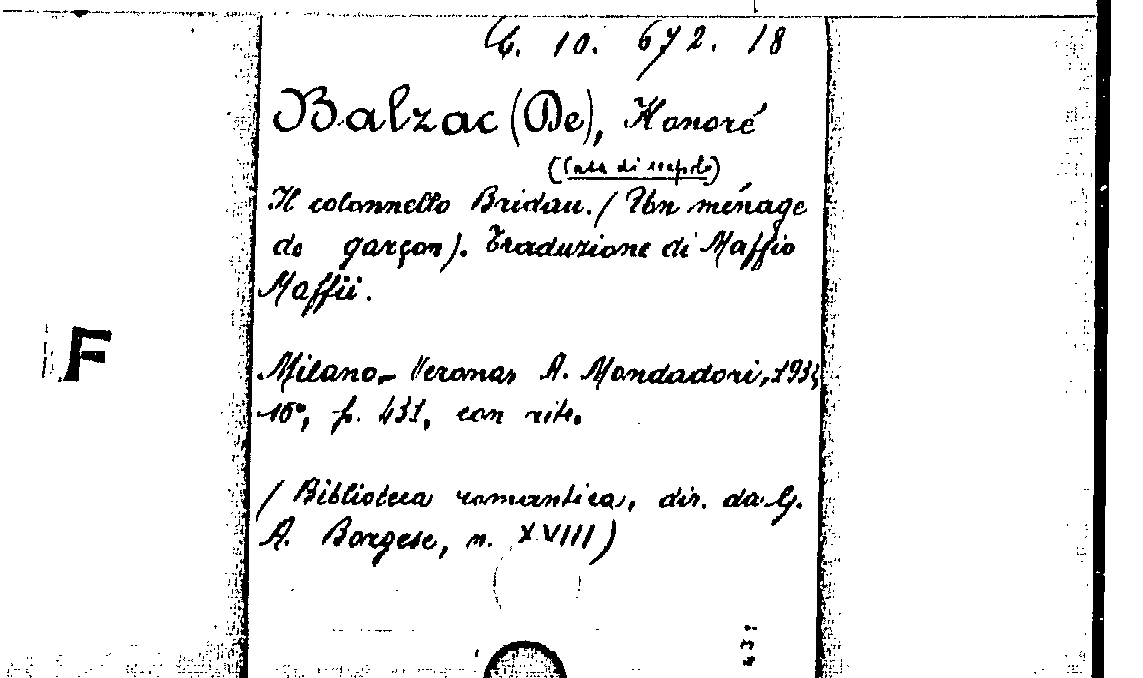 C. 10. 672. 18
Balzac (De), Honoré
(Casa di
Il colonnello Bridau. (Un ménage
de garçon). Traduzione di Maffio
Maffii.
F
Milano-Verona, A. Mondadori, 193
16°, p. 431, con ritr.
(Biblioteca romantica, dir. da G.
A. Borgese, n. XVIII)